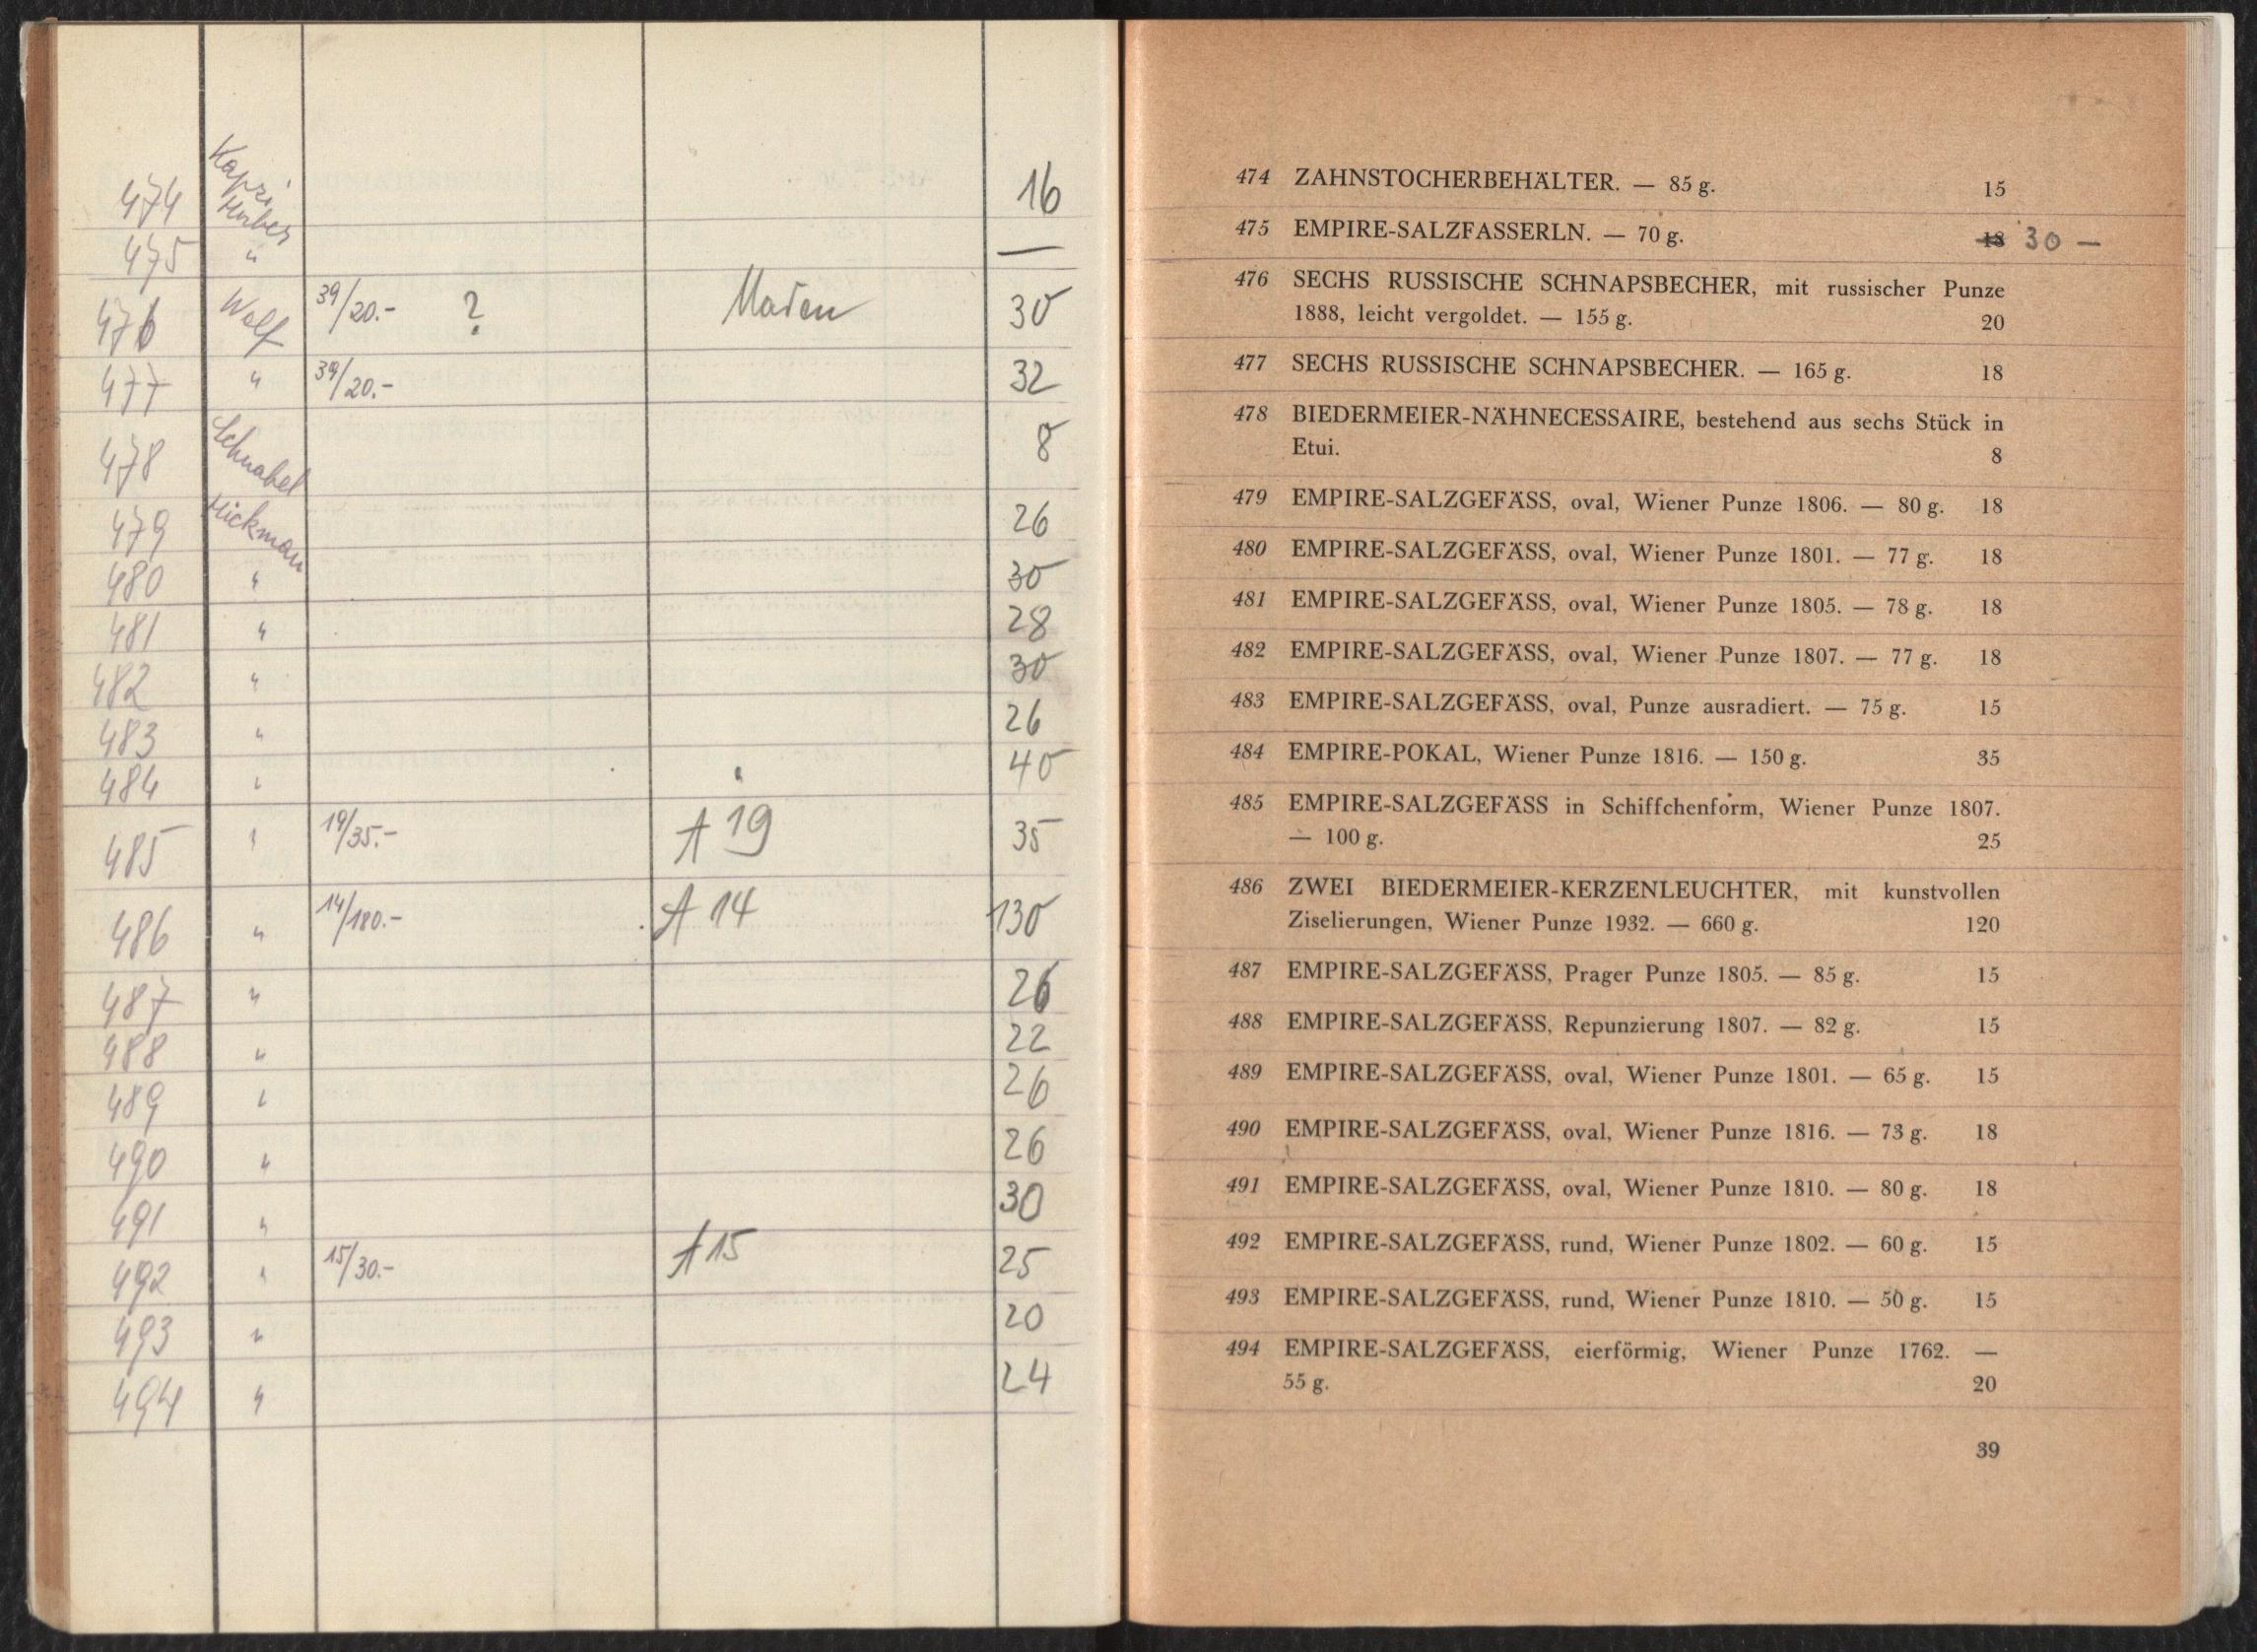 474 Kapri Herber 16
475 " —
476 Wolf 39/20.- ? Maden 30
477 " 39/20.- 32
478 Schnabel 8
479 Hickman 26
480 " 30
481 " 28
482 " 30
483 " 26
484 " 40
485 " 19/35.- A 19 35
486 " 14/180.- A 14 130
487 " 26
488 " 22
489 " 26
490 " 26
491 " 30
492 " 15/30.- A 15 25
493 " 20
494 " 24
474 ZAHNSTOCHERBEHÄLTER. — 85 g. 15
475 EMPIRE-SALZFASSERLN. — 70 g. 18 30 —
476 SECHS RUSSISCHE SCHNAPSBECHER, mit russischer Punze
1888, leicht vergoldet. — 155 g. 20
477 SECHS RUSSISCHE SCHNAPSBECHER. — 165 g. 18
478 BIEDERMEIER-NÄHNECESSAIRE, bestehend aus sechs Stück in
Etui. 8
479 EMPIRE-SALZGEFÄSS, oval, Wiener Punze 1806. — 80 g. 18
480 EMPIRE-SALZGEFÄSS, oval, Wiener Punze 1801. — 77 g. 18
481 EMPIRE-SALZGEFÄSS, oval, Wiener Punze 1805. — 78 g. 18
482 EMPIRE-SALZGEFÄSS, oval, Wiener Punze 1807. — 77 g. 18
483 EMPIRE-SALZGEFÄSS, oval, Punze ausradiert. — 75 g. 15
484 EMPIRE-POKAL, Wiener Punze 1816. — 150 g. 35
485 EMPIRE-SALZGEFÄSS in Schiffchenform, Wiener Punze 1807.
— 100 g. 25
486 ZWEI BIEDERMEIER-KERZENLEUCHTER, mit kunstvollen
Ziselierungen, Wiener Punze 1932. — 660 g. 120
487 EMPIRE-SALZGEFÄSS, Prager Punze 1805. — 85 g. 15
488 EMPIRE-SALZGEFÄSS, Repunzierung 1807. — 82 g. 15
489 EMPIRE-SALZGEFÄSS, oval, Wiener Punze 1801. — 65 g. 15
490 EMPIRE-SALZGEFÄSS, oval, Wiener Punze 1816. — 73 g. 18
491 EMPIRE-SALZGEFÄSS, oval, Wiener Punze 1810. — 80 g. 18
492 EMPIRE-SALZGEFÄSS, rund, Wiener Punze 1802. — 60 g. 15
493 EMPIRE-SALZGEFÄSS, rund, Wiener Punze 1810. — 50 g. 15
494 EMPIRE-SALZGEFÄSS, eierförmig, Wiener Punze 1762. —
55 g. 20
39